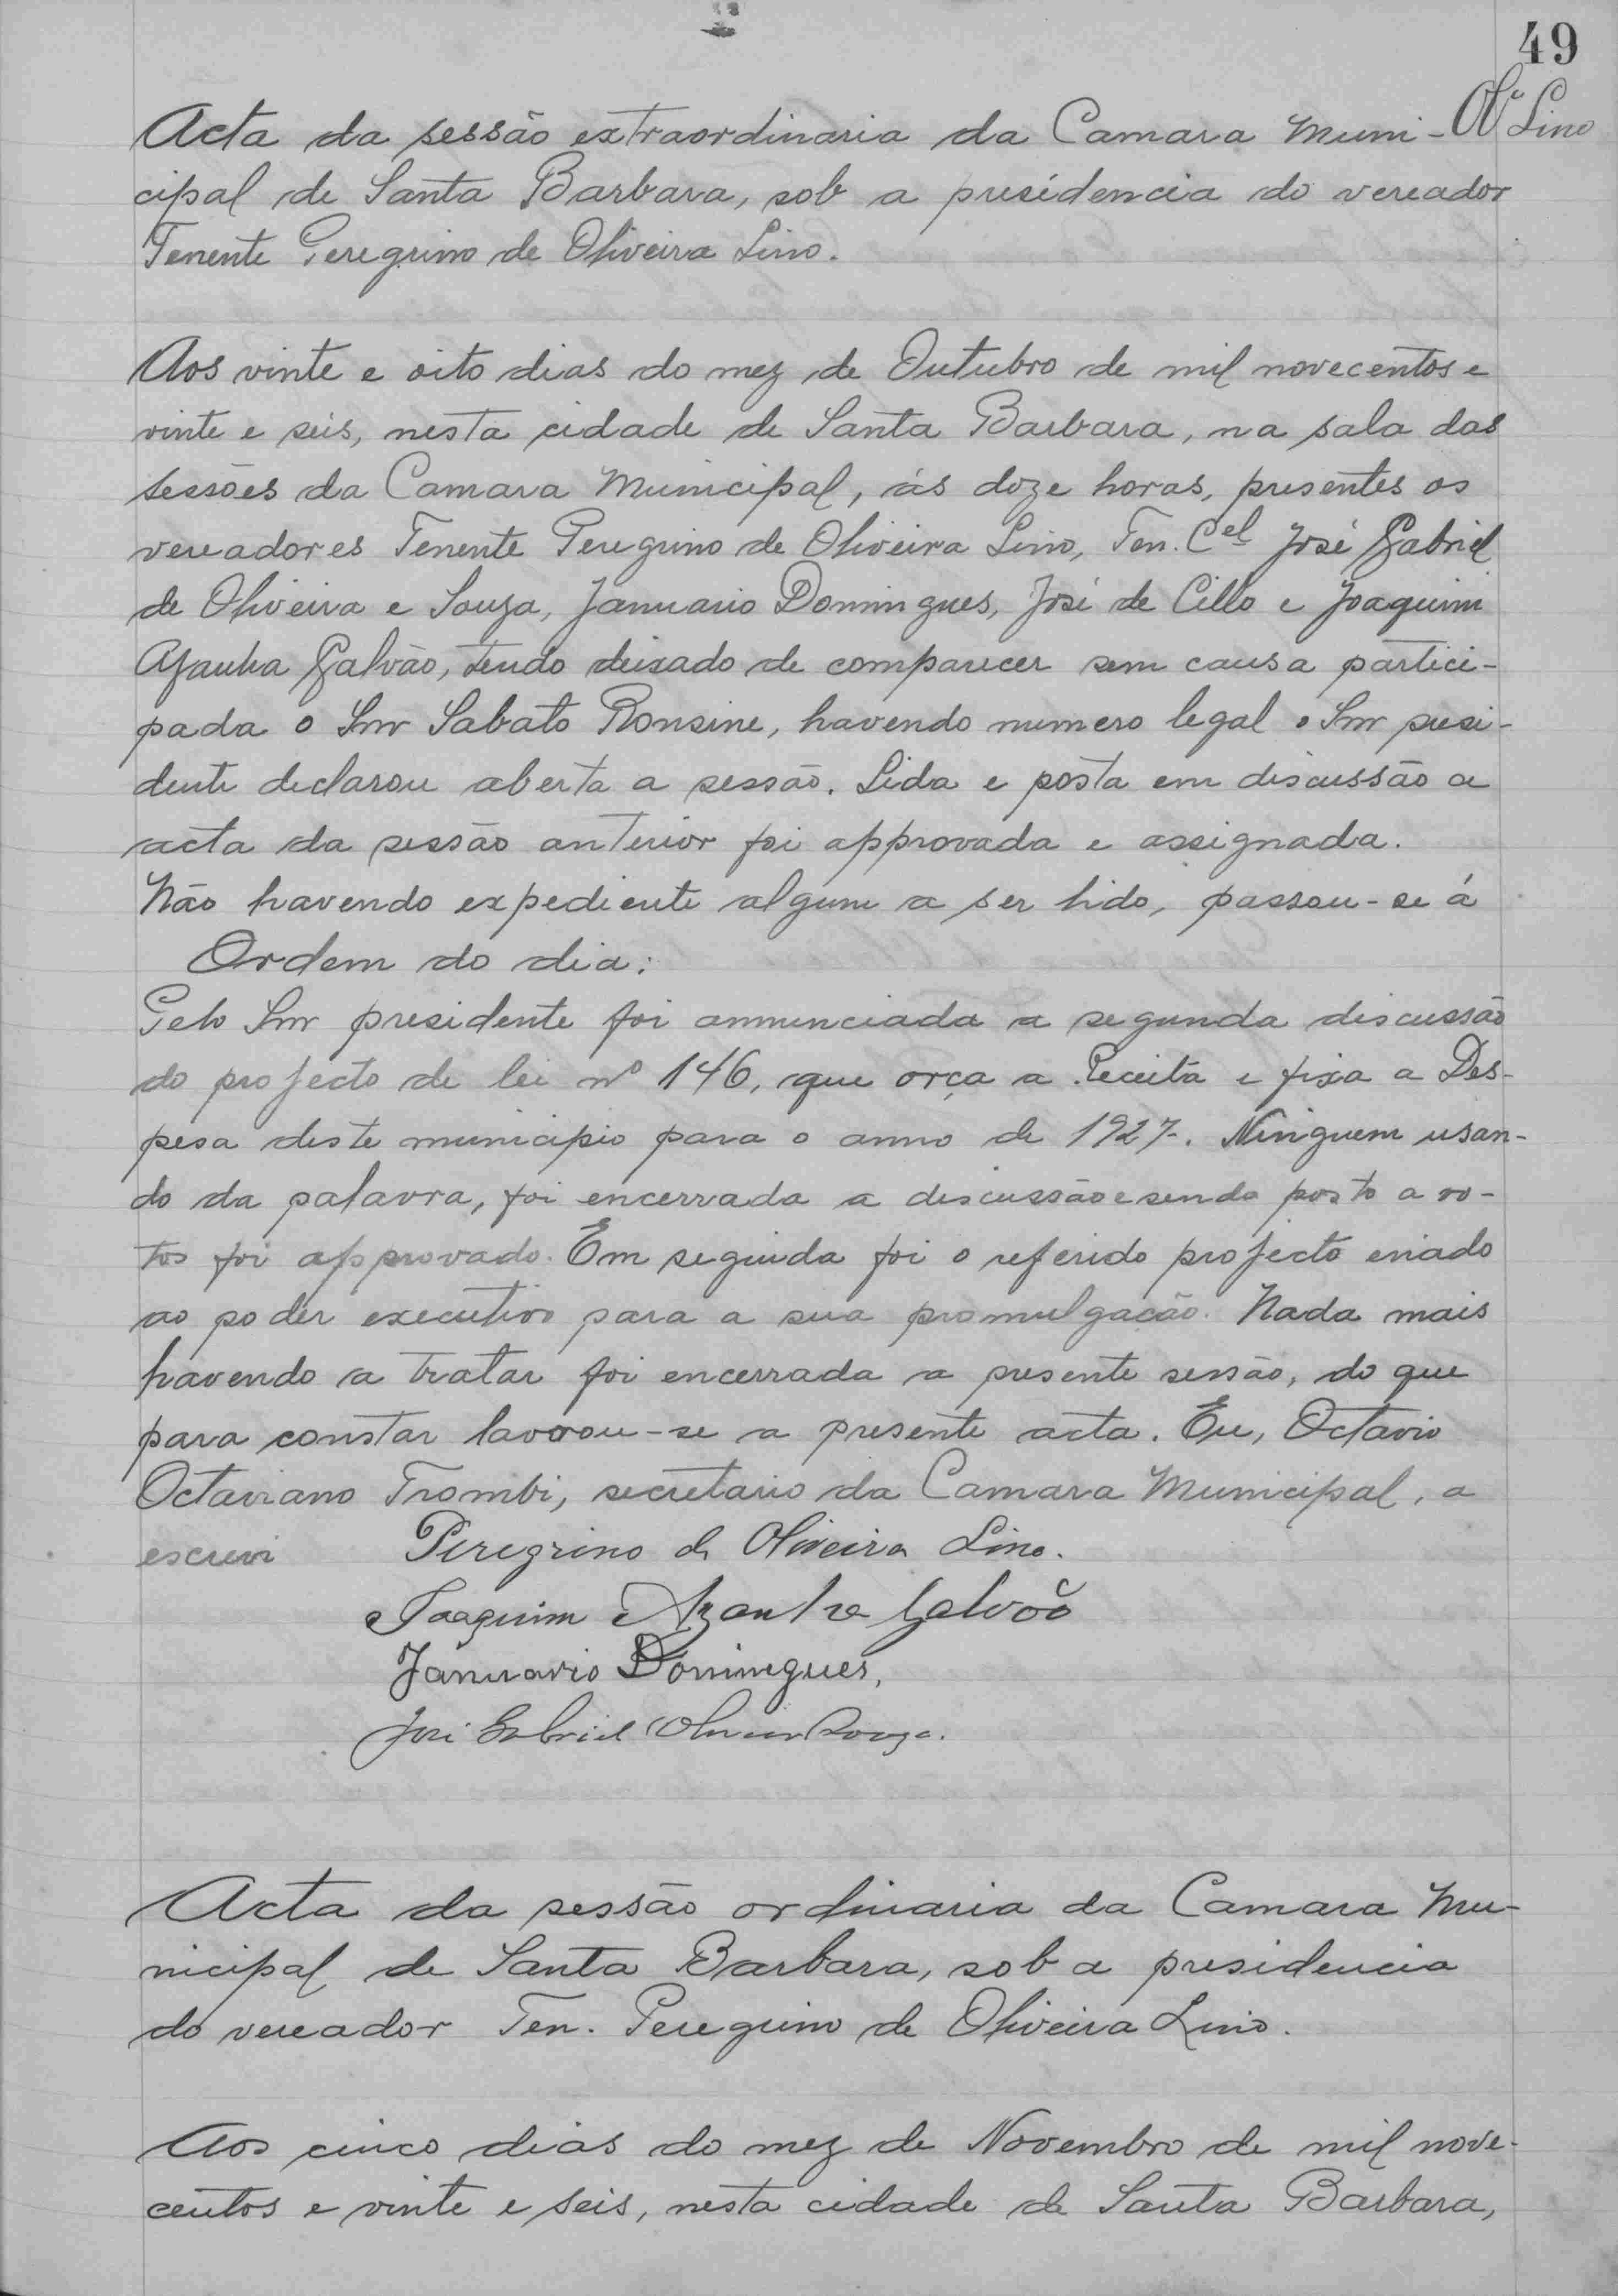 49
Ol.ª Lino
Acta da sessão extraordinaria da Camara Muni-
cipal de Santa Barbara, sob a presidencia do vereador
Tenente Peregrino de Oliveira Lino.
Aos vinte e oito dias do mez de Outubro de mil novecentos e
vinte e seis, nesta cidade de Santa Barbara, na sala das
sessões da Camara Municipal, ás doze horas, presentes os
vereadores Tenente Peregrino de Oliveira Lino, Ten. Cel José Gabriel
de Oliveira e Souza, Januario Domingues, José de Cillo e Joaquim
Azanha Galvão, tendo deixado de comparecer sem causa partici-
pada o Snr Sabato Ronsine, havendo numero legal o Snr presi-
dente declarou aberta a sessão. Lida e posta em discussão a
acta da sessão anterior foi approvada e assignada.
Não havendo expediente algum a ser lido, passou-se á
Ordem do dia:
Pelo Snr presidente foi annunciada a segunda discussão
do projecto de lei nº 146, que orça a Receita e fixa a Des-
pesa deste municipio para o anno de 1927. Ninguem usan-
do da palavra, foi encerrada a discussão e sendo posto a vo-
tos foi approvado. Em seguida foi o referido projecto eniado
ao poder executivo para a sua promulgação. Nada mais
havendo a tratar foi encerrada a presente sessão, do que
para constar lavrou-se a presente acta. Eu, Octavio
Octaviano Trombi, secretario da Camara Municipal, a
escrevi Peregrino de Oliveira Lino.
Joaquim Azanha Galvão
Januario Domingues,
José Gabriel Oliveira Souza.
Acta da sessão ordinaria da Camara Mu-
nicipal de Santa Barbara, sob a presidencia
do vereador Ten. Peregrino de Oliveira Lino.
Aos cinco dias do mez de Novembro de mil nove-
centos e vinte e seis, nesta cidade de Santa Barbara,